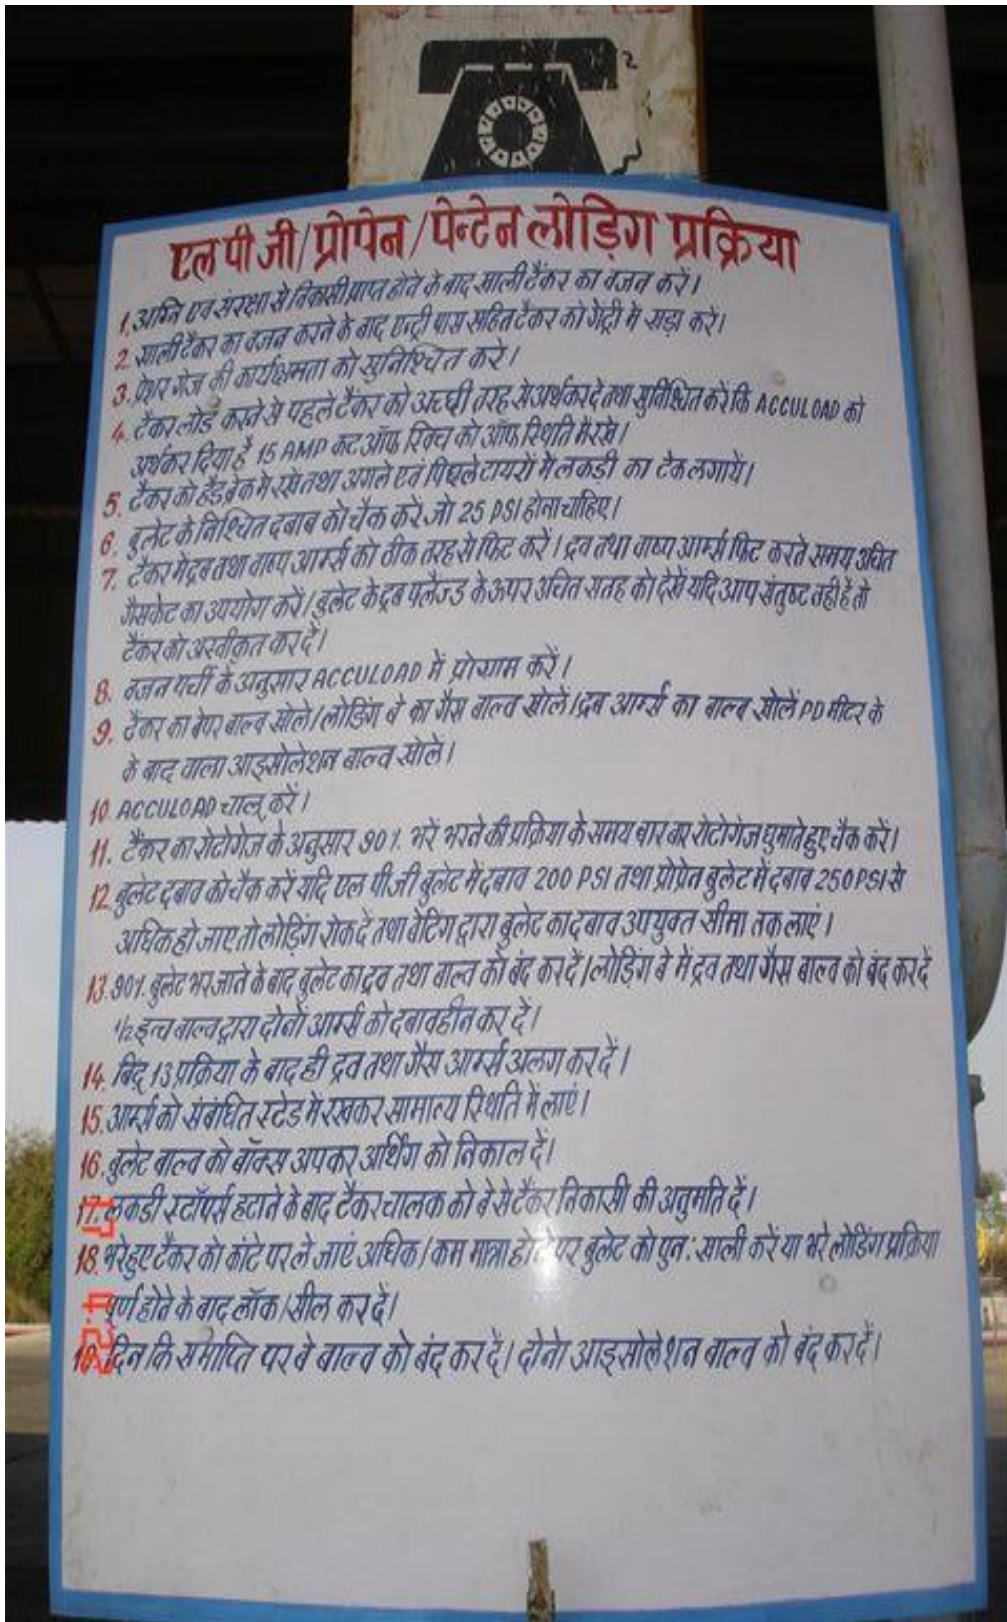 एल पी जी/प्रोपेन/पेन्टेन लोडिंग प्रक्रिया
1. अग्नि एवं संरक्षा से निकासी प्राप्त होने के बाद खाली टैंकर का वजन करें।
2. खाली टैंकर का वजन करने के बाद एन्ट्री पास सहित टैंकर को गेंट्री में खड़ा करे।
3. प्रेशर गेज की कार्यक्षमता को सुनिश्चित करे।
4. टैंकर लोड करने से पहले टैंकर को अच्छी तरह से अर्थ कर दे तथा सुनिश्चित करें कि ACCULOAD को
अर्थ कर दिया है 15 AMP कट ऑफ स्विच को ऑफ स्थिति मे रखे।
5. टैंकर को हैंड ब्रेक मे रखे तथा अगले एवं पिछले टायरों में लकड़ी का टेक लगायें।
6. बुलेट के निश्चित दबाब को चैक करें जो 25 PSI होना चाहिए।
7. टैंकर मे द्रव तथा वाष्प आर्म्स को ठीक तरह से फिट करें। द्रव तथा वाष्प आर्म्स फिट करते समय उचित
गैसकेट का उपयोग करें। बुलेट के द्रब फ्लैन्ज के ऊपर उचित सतह को देखें यदि आप संतुष्ट नही हैं तो
टैंकर को अस्वीकृत कर दें।
8. वजन पर्ची के अनुसार ACCULOAD में प्रोग्राम करें।
9. टैंकर का बेपर बाल्व खोले। लोडिंग बे का गैस बाल्व खोलें। द्रब आर्म्स का बाल्ब खोलें PD मीटर के
के बाद वाला आइसोलेशन बाल्व खोले।
10. ACCULOAD चालू करें।
11. टैंकर का रोटोगेज के अनुसार 90% भरें भरने की प्रक्रिया के समय बार बार रोटोगेज घुमाते हुए चैक करें।
12. बुलेट दबाव को चैक करें यदि एल पी जी बुलेट में दबाव 200 PSI तथा प्रोपेन बुलेट में दबाव 250 PSI से
अधिक हो जाए तो लोड़िंग रोक दें तथा वेंटिग द्वारा बुलेट का दबाव उपयुक्त सीमा तक लाएं।
13. 90% बुलेट भर जाने के बाद बुलेट का द्रव तथा बाल्व को बंद कर दें। लोडिंग बे में द्रव तथा गैस बाल्व को बंद कर दें
1/2 इन्च बाल्व द्वारा दोनों आर्म्स को दबावहीन कर दें।
14. बिंदु 13 प्रक्रिया के बाद ही द्रव तथा गैस आर्म्स अलग कर दें।
15. आर्म्स को संबंधित स्टेंड में रखकर सामान्य स्थिति में लाएं।
16. बुलेट बाल्व को बॉक्स अपकर अर्थिंग को निकाल दें।
17. लकडी स्टॉपर्स हटाने के बाद टैंकर चालक को बे से टैंकर निकासी की अनुमति दें।
18. भरे हुए टैंकर को कांटे पर ले जाएं अधिक/कम मात्रा होने पर बुलेट को पुन: खाली करें या भरे लोडिंग प्रक्रिया
पूर्ण होने के बाद लॉक/सील कर दें।
दिन कि समाप्ति पर बे बाल्व को बंद कर दें। दोनो आइसोलेशन बाल्व को बंद कर दें।